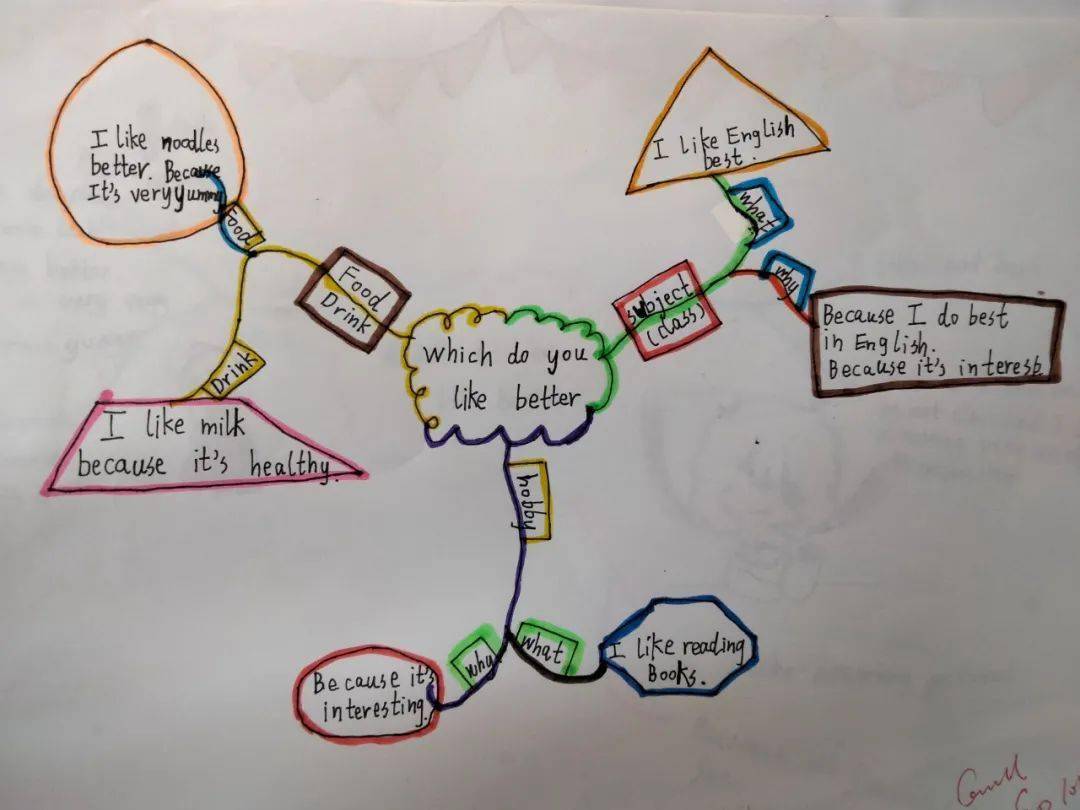 I like noodles
better. Because
It's very yummy
Food
Food
Drink
Drink
I like milk
because it's healthy.
which do you
like better
I like English
best.
what
why
subject
(class)
Because I do best
in English.
Because it's interest
hobby
why
what
Because it's
interesting.
I like reading
Books.